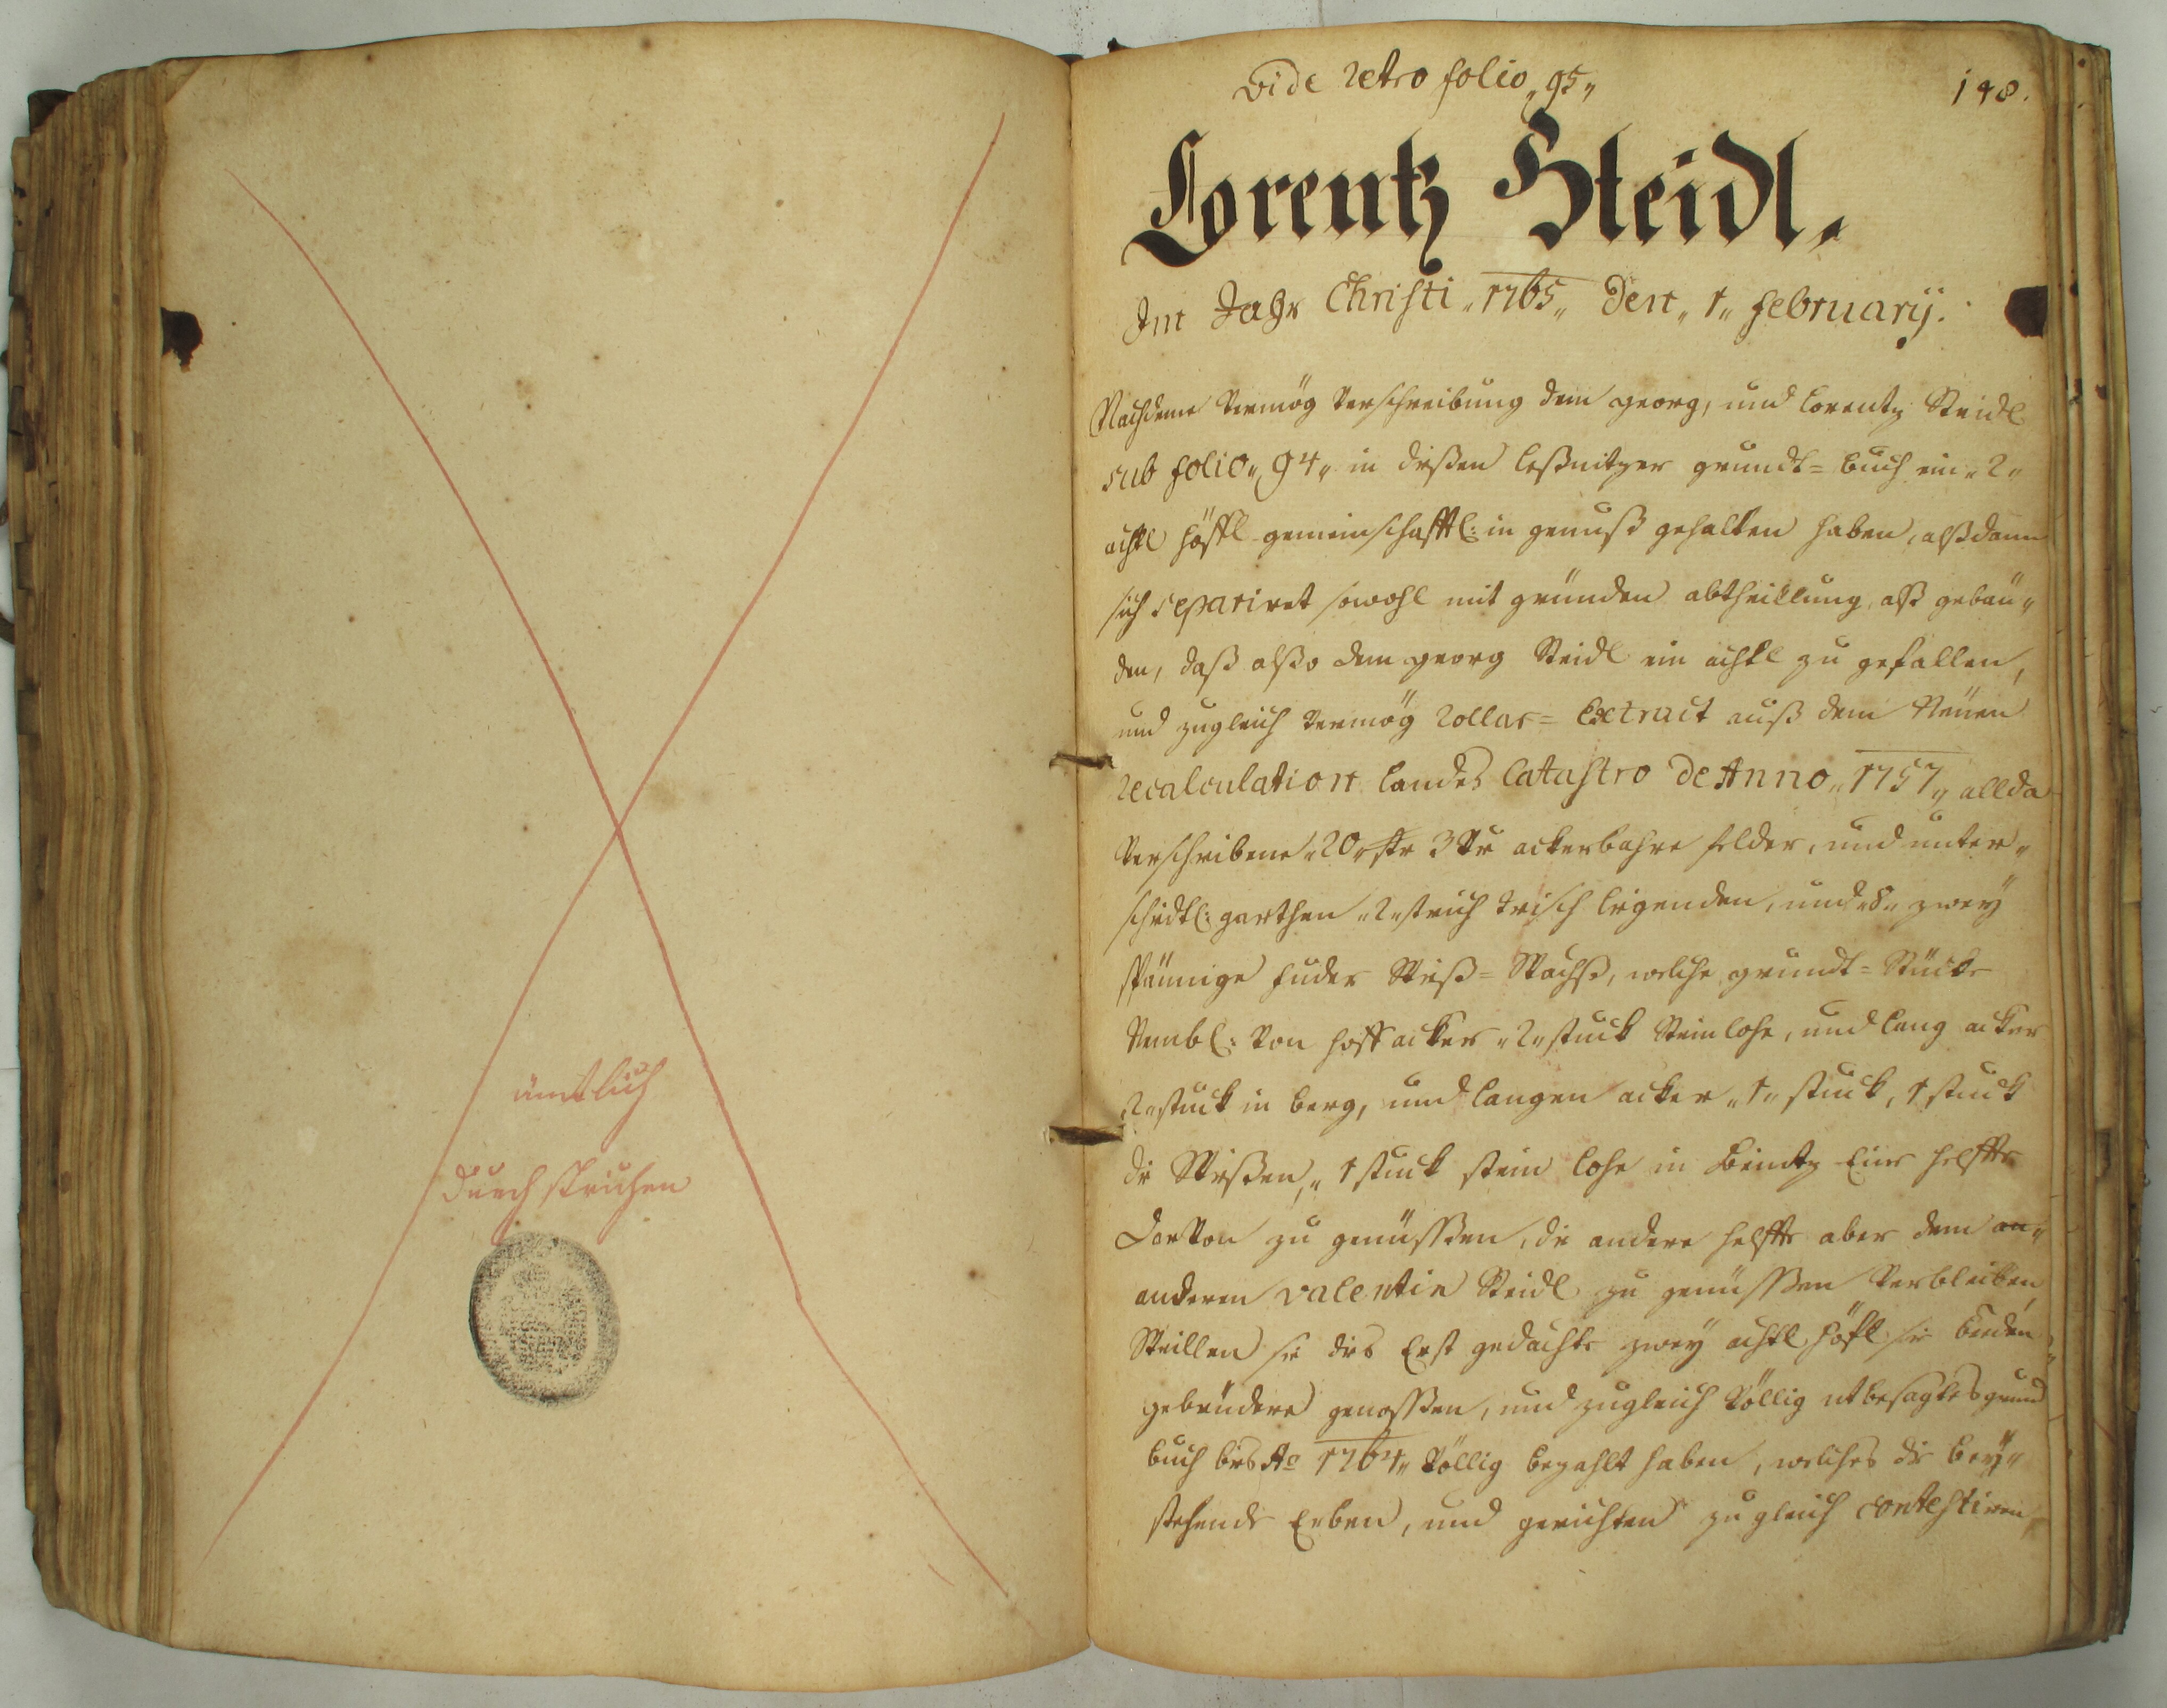 ämtlich
durchstrichen
Vide retro folio „95„
148.
Lorentz Steidl.
Im Jahr Christi „1765„ den „1„ February.
Nachdeme Vermög Verschreibung dem georg, und Lorentz Steidl
sub folio „94„ in dißen grundt=buch ein „2„
achtl höffl gemeinschafftl: in genuß gehalten haben, alßdann
sich separiret sowohl mit gründen abtheillung, alß gebäu„
den, daß alßo dem georg Steidl ein achtl zu gefallen,
und zugleich Vermög Extract auß dem Neüen
Recalculation Landes Catastro de Anno „1757„ allda
Verschribene „20„ str 3 ackerbahre felder, und unter„
schidtl: garthen „2„ strich trisch ligenden, und „8„ zwey
spännige fuder Wiß=Wachß, welche grundt=Stücke
Nembl: Von hoffacker „2„ stuck Steinlohe, und lang acker
2„ stuck in berg, und langen acker „1„ stuck, 1 stuck
die Wißen, „1 stuck stein lohe in Eine helffte
darVon zu genüssen, die andere helffte aber dem an„
anderen Valentin Steidl zu genüssen Verbleiben
Weillen sie dies Erst gedachte zwey achtl höfl sie beede
gebrüdere genossen, und zugleich Völlig ut besagtes grund
buch bis Ao 1764„ Völlig bezahlt haben, welches die bey„
stehende Erben, und gerichten zugleich contestiren,